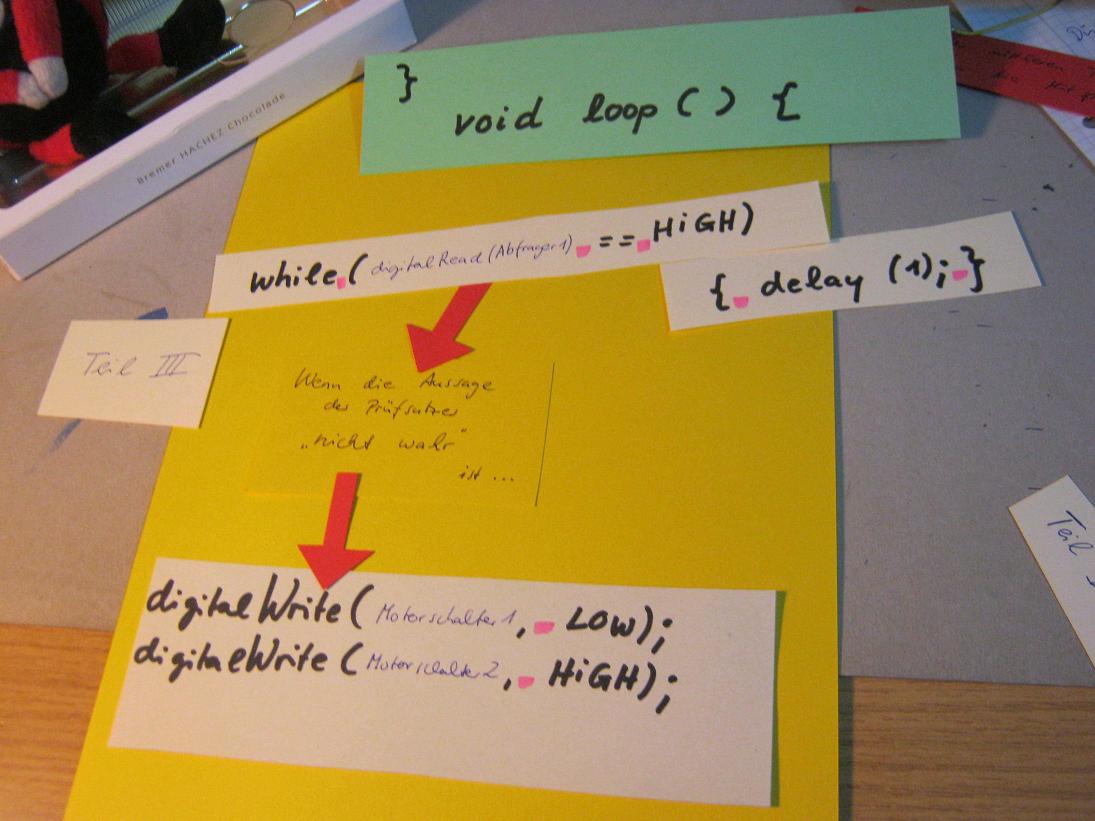 Bremer HACHEZ Chocolade
}
void loop ( ) {
while ( digitalRead (Abfrager1) == HiGH)
{ delay (1); }
Teil III
Wenn die Aussage
des Prüfsatzes
„nicht wahr"
ist ...
Teil
digitalWrite ( Motorschalter1, LOW);
digitalWrite ( Motorschalter2, HiGH);